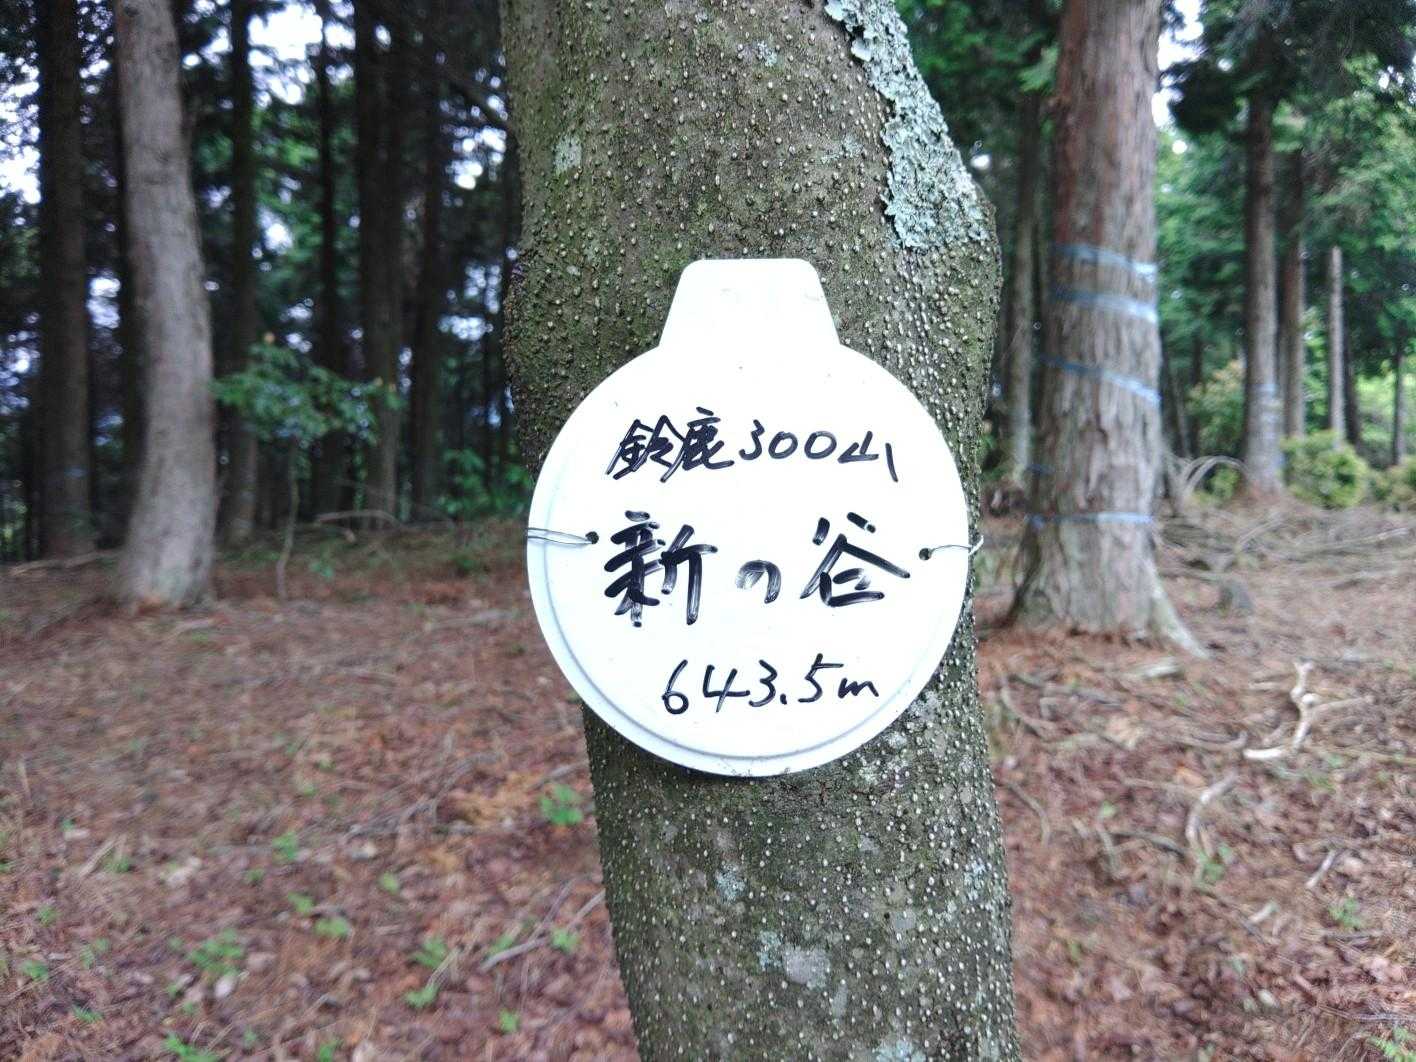 鈴鹿300山
新の谷
643.5m